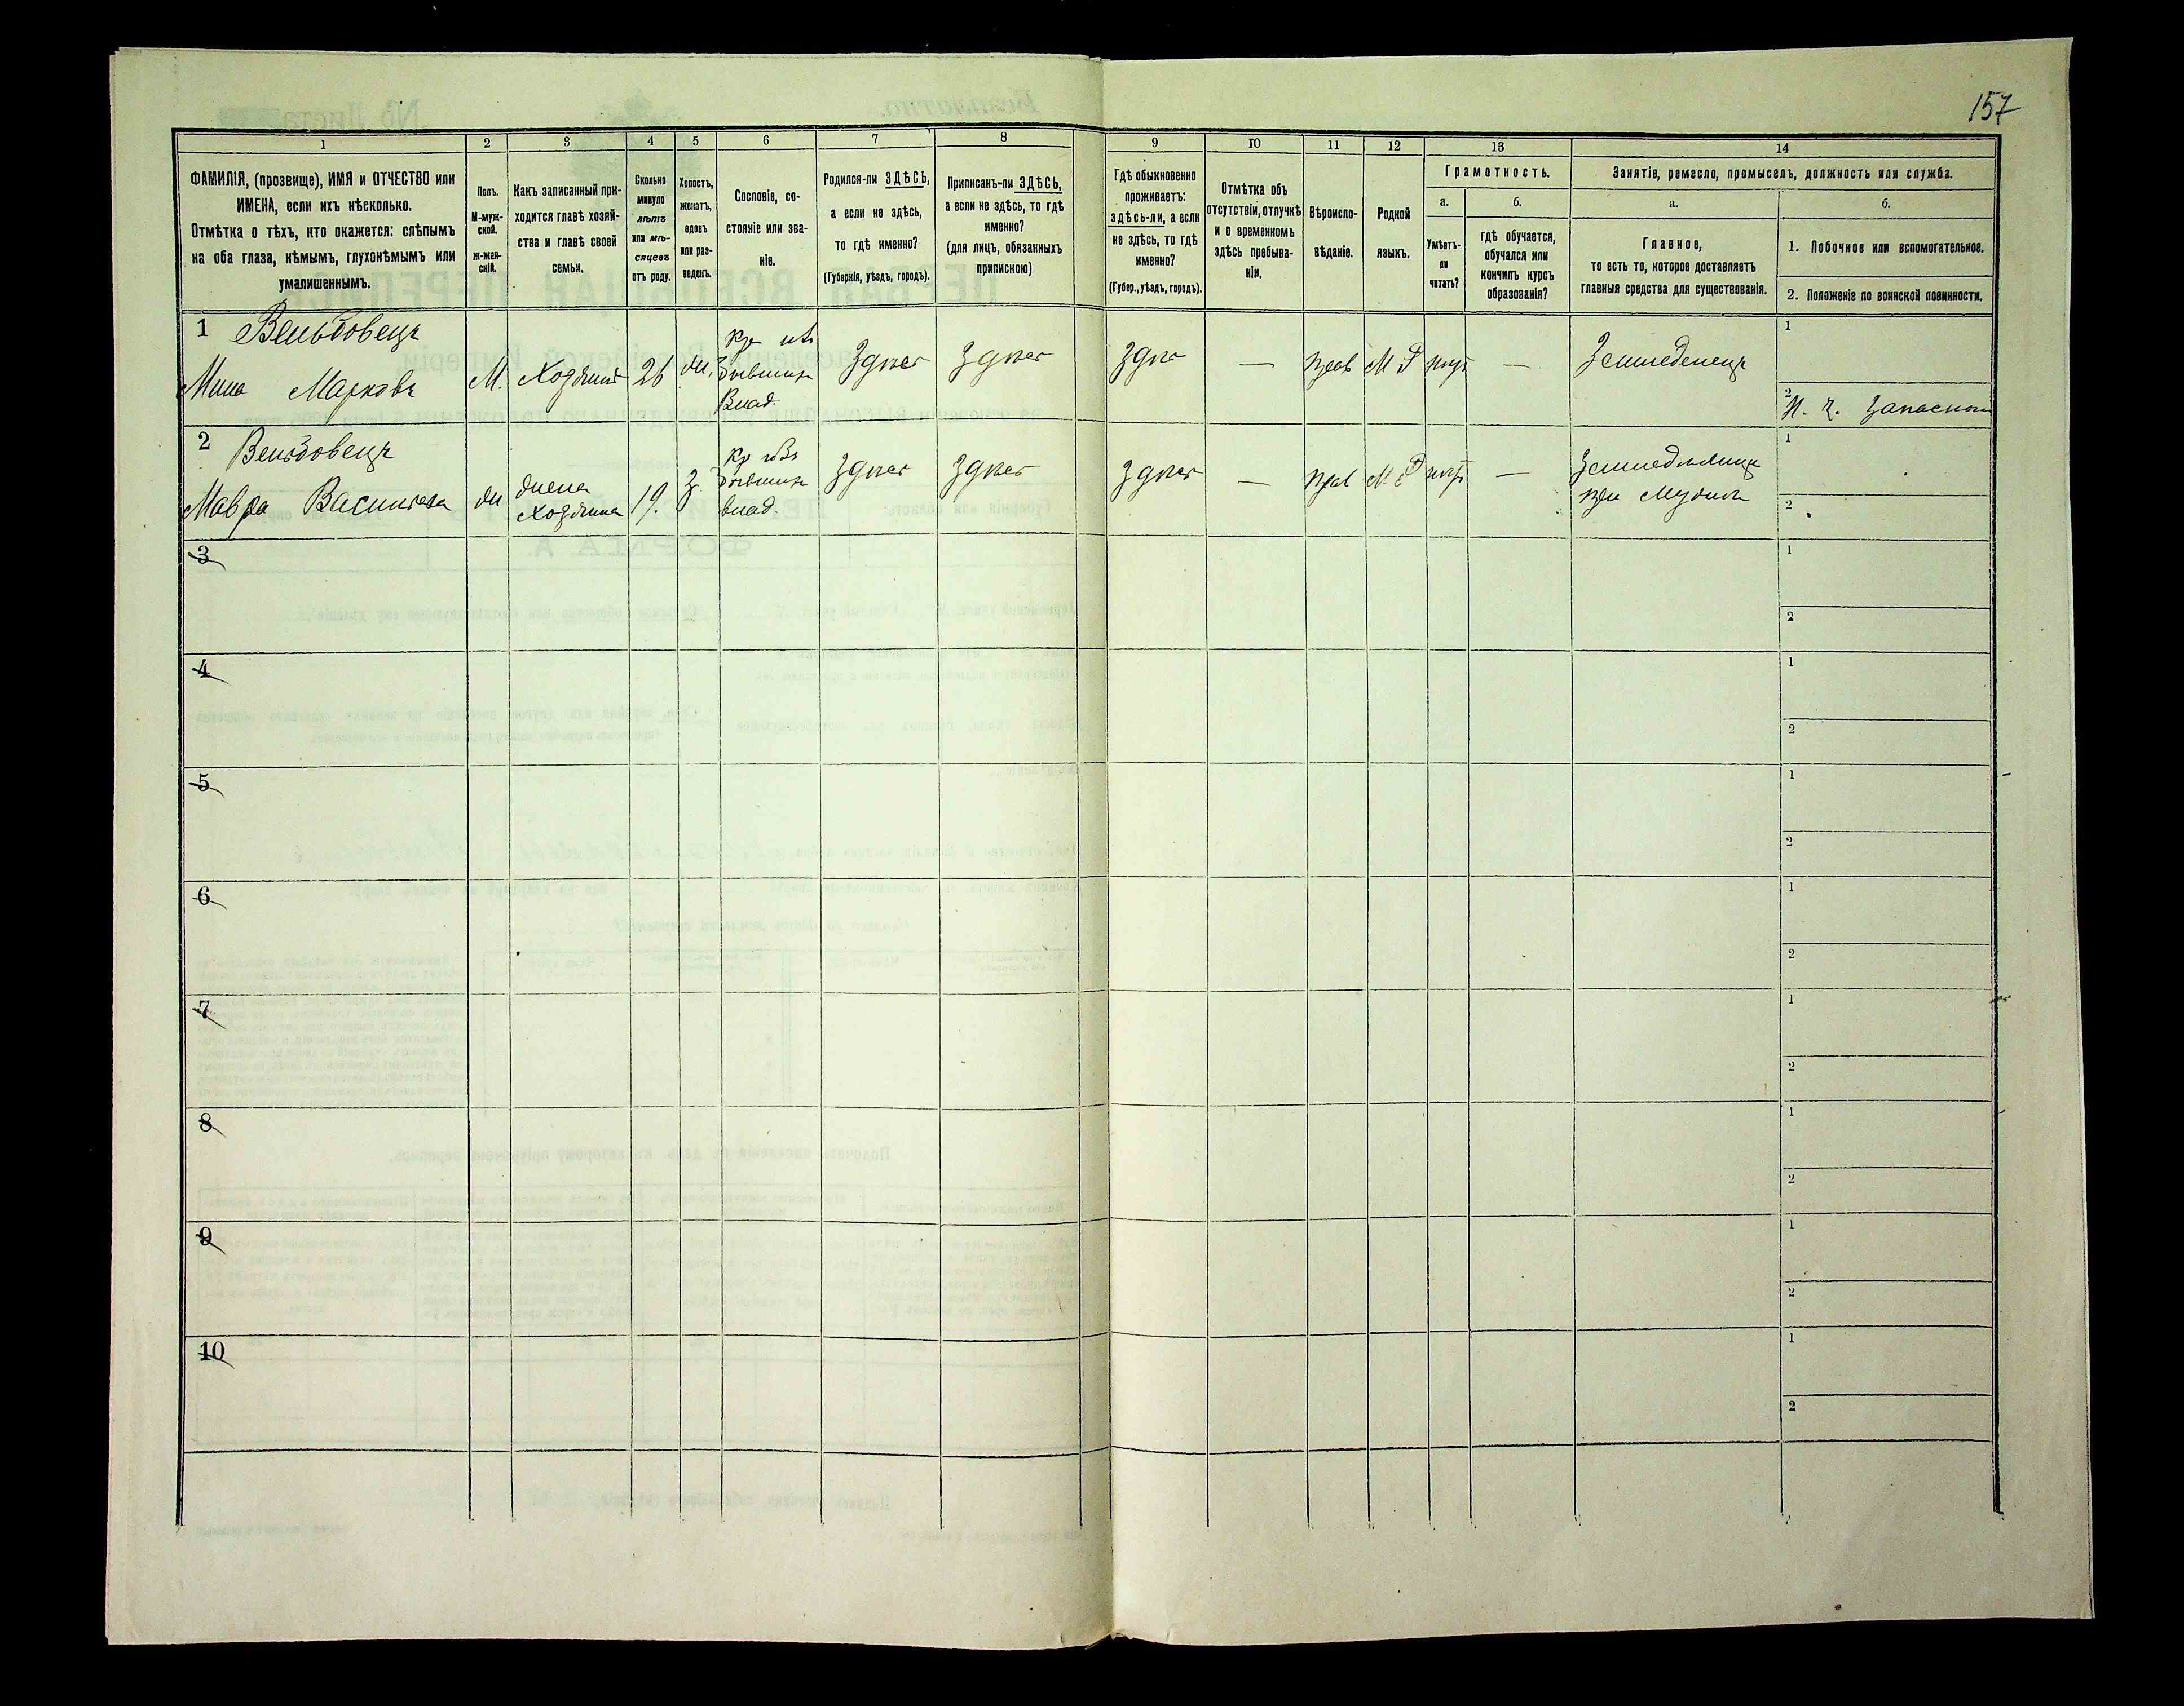 157
1 2 3 4 5 6 7 8 9 10 11 12 13 14
ФАМИЛІЯ, (прозвище), ИМЯ и ОТЧЕСТВО или
ИМЕНА, если ихъ нѣсколько.
Отмѣтка о тѣхъ, кто окажется: слѣпымъ
на оба глаза, нѣмымъ, глухонѣмымъ или
умалишеннымъ.
Полъ.
М-муж-
ской.
Ж-жен-
скій.
Какъ записанный при-
ходится главѣ хозяй-
ства и главѣ своей
семьи.
Сколько
минуло
лѣтъ
или мѣ-
сяцевъ
отъ роду.
Холостъ,
женатъ,
вдовъ
или раз-
веденъ.
Сословіе, со-
стояніе или зва-
ніе.
Родился-ли ЗДѢСЬ,
а если не здѣсь,
то гдѣ именно?
(Губернія, уѣздъ, городъ).
Приписанъ-ли ЗДѢСЬ,
а если не здѣсь, то гдѣ
именно?
(для лицъ, обязанныхъ
припискою)
Гдѣ обыкновенно
проживаетъ:
здѣсь-ли, а если
не здѣсь, то гдѣ
именно?
(Губер., уѣздъ, городъ).
Отмѣтка объ
отсутствіи, отлучкѣ
и о временномъ
здѣсь пребыва-
ніи.
Вѣроиспо-
вѣданіе.
Родной
языкъ.
Грамотность.
а.
Умѣетъ-
ли
читать?
б.
гдѣ обучается,
обучался или
кончилъ курсъ
образованія?
Занятіе, ремесло, промыселъ, должность или служба.
а.
Главное,
то есть то, которое доставляетъ
главныя средства для существованія.
б.
1. Побочное или вспомогательное.
2. Положеніе по воинской повинности.
1 Вельдовецъ
Мина Марковъ
М. Хозяинъ 26 ж.
бывшихъ
Влад.
Здѣсь Здѣсь
— прав М Р — Земледелецъ
1
2 запасной
2 Вельдовецъ
Мавра Васильева
ж жена
Хозяина
19. з
бывшихъ
влад.
Здѣсь Здѣсь Здѣсь
— —
при Мужѣ
1
2
3 1
2
4 1
2
5 1
2
6 1
2
7 1
2
8 1
2
9 1
2
10 1
2